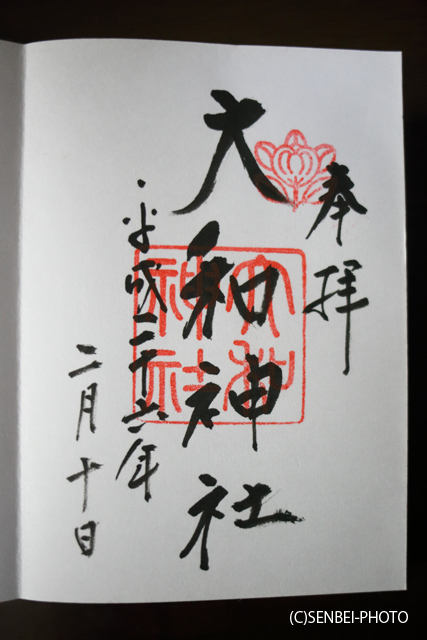 奉拝
大和神社
平成二十六年
二月十日
大和神社
(C)SENBEI-PHOTO